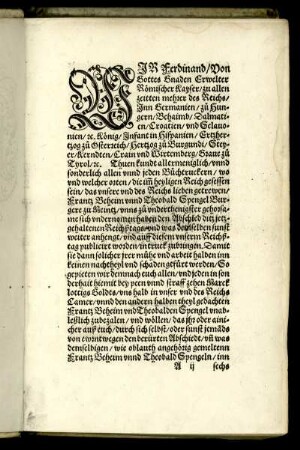 WIR Ferdinand/ Von
Gottes Gnaden Erwelter
Römischer Kayser/ zu allen
zeitten mehrer des Reichs/
Inn Germanien/ zu Hun-
gern/ Behaimb/ Dalmati-
en/ Croatien/ vnd Sclauo-
nien/ ꝛc. König/ Infant in Hispanien/ Ertzher-
tzog zu Osterreich/ Hertzog zu Burgundi/ Stey-
er/ Kerndten/ Crain vnd Wirtemberg/ Graue zu
Tyrol/ ꝛc. Thuen kundt allermeniglich/ vnnd
sonderlich allen vnnd jeden Bůchtruckern/ wo
vnd welcher orten/ die im heyligen Reich gesessen
sein/ das vnsere vnd des Reichs lieben getrewen/
Frantz Beheim vnnd Theobald Spengel Bur-
gere zu Meintz/ vnns zu vnderthenigster gehorsa-
me sich vndernomen haben den Abschiedt ditz jetz-
gehaltenen Reichstags/ vnd was demselben sunst
weitter anhengt/ vnd auff diesem vnserm Reichs-
tag publicirt worden/ in truck zubringen. Damit
sie dann solicher jrer mühe vnd arbeit halden inn
keinen nachtheyl vnd schaden gefürt werden. So
gepietten wir demnach euch allen/ vnd jeden in son-
derheit hiemit bey peen vnnd straff zehen Marck
lottigs Golds/ vns halb in vnser vnd des Reichs
Camer/ vnnd den andern halben theyl gedachten
Frantz Beheim vnd Theobalden Spengel vnab-
leßlich zubezalen/ vnd wöllen/ das jhr oder aini-
cher auß euch/ durch sich selbst/ oder sunst jemads
von ewrnt wegen den berürten Abschiedt/ vñ was
demselbigen/ wie oblauth angehörig gemeltenn
Frantz Beheim vnnd Theobald Spengeln/ inn
A ij sechs